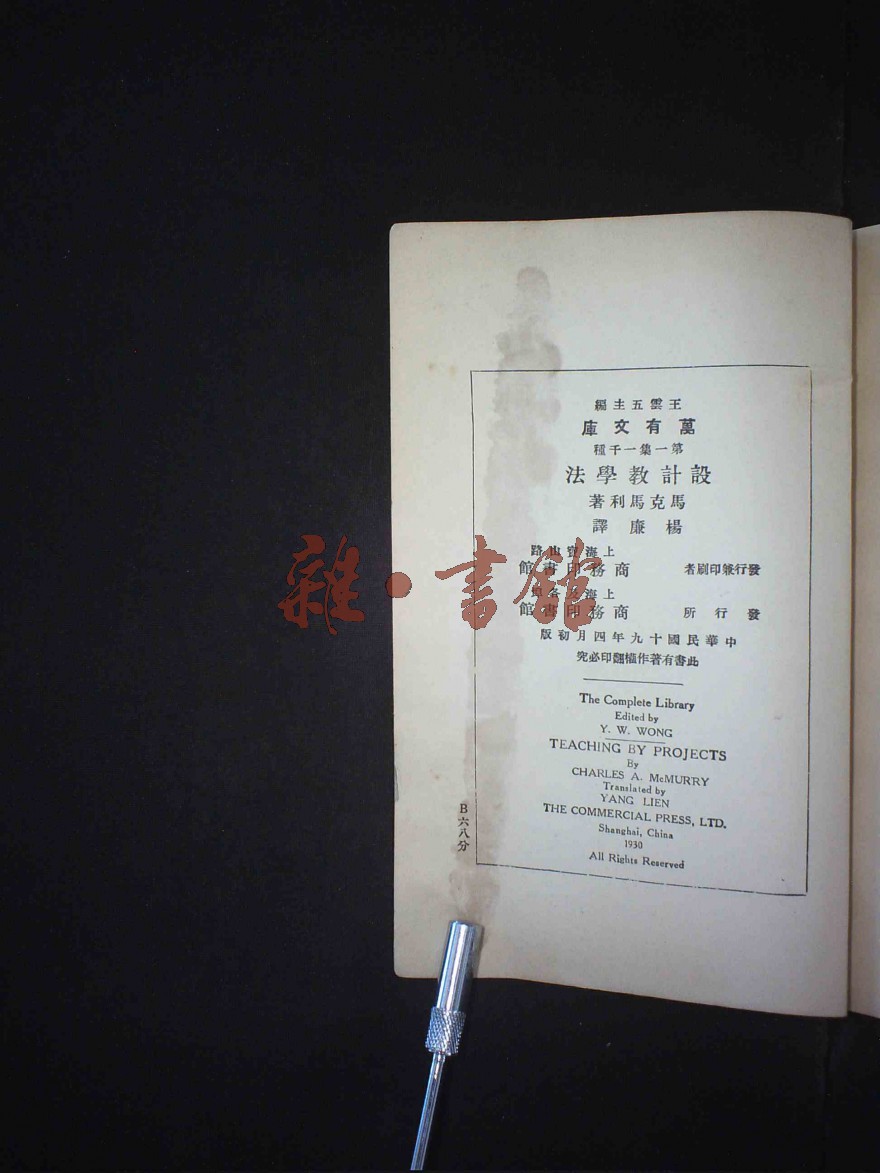 王雲五主編
萬有文庫
第一集一千種
設計教學法
馬克馬利著
楊廉譯
上海寶山路
發行兼印刷者 商務印書館
上海及各埠
發行所 商務印書館
中華民國十九年四月初版
此書有著作權翻印必究
The Complete Library
Edited by
Y. W. WONG
TEACHING BY PROJECTS
By
CHARLES A. McMURRY
Translated by
YANG LIEN
THE COMMERCIAL PRESS, LTD.
Shanghai, China
1930
All Rights Reserved
B六八分
雜·書館